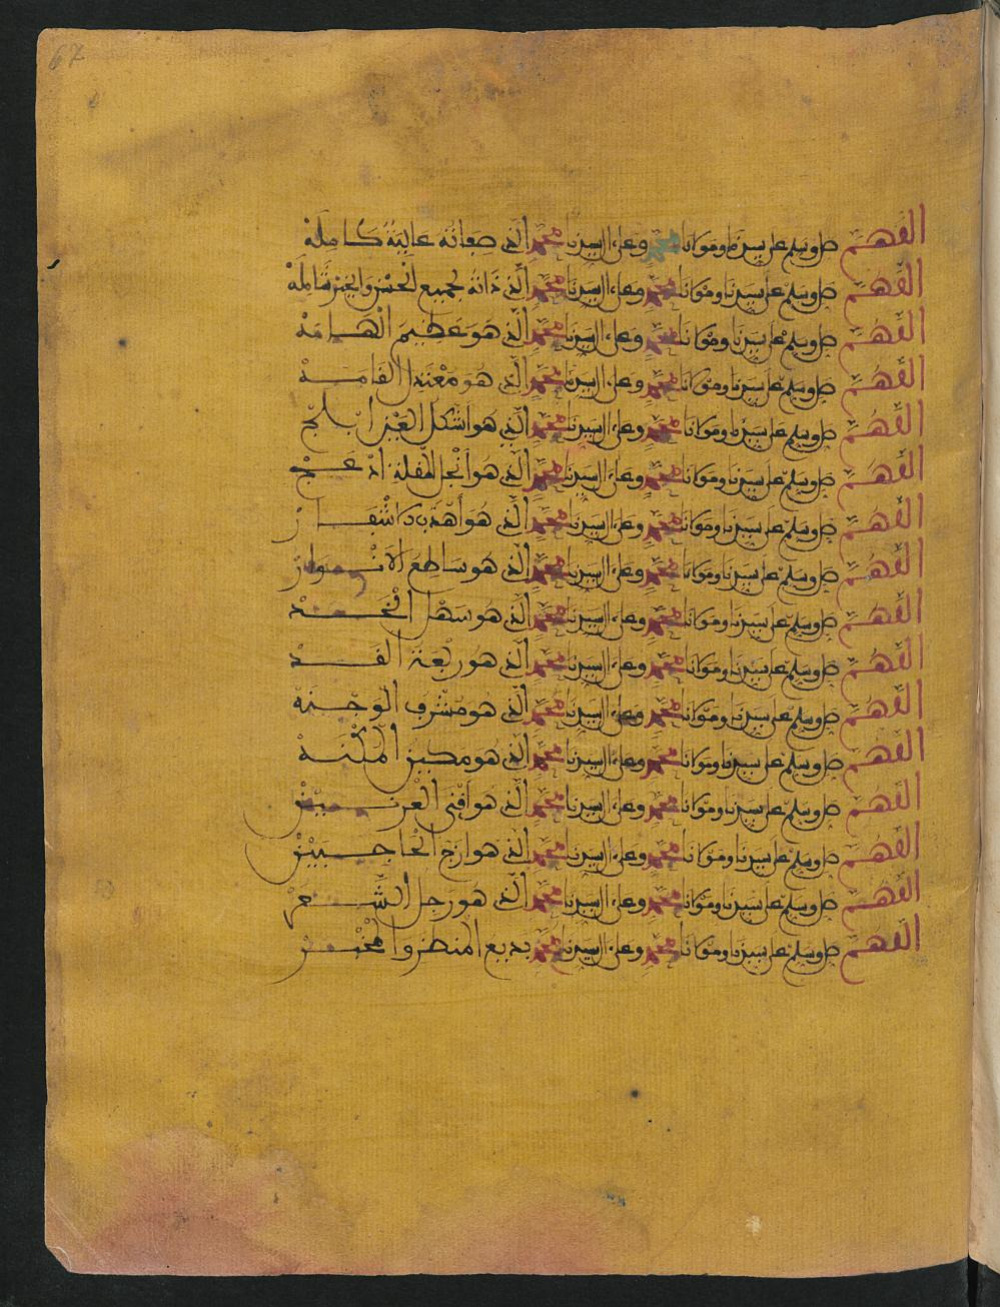 67
اللهم صل وسلم على سيدنا ومولانا محمد وعلى ال سيدنا محمد الذي صفاته عالية كاملة
اللهم صل وسلم على سيدنا ومولانا محمد وعلى ال سيدنا محمد الذي ذاته لجميع الحسن والخير شاملة
اللهم صل وسلم على سيدنا ومولانا محمد وعلى ال سيدنا محمد الذي هو عظيم الهامة
اللهم صل وسلم على سيدنا ومولانا محمد وعلى ال سيدنا محمد الذي هو معتدل القامة
اللهم صل وسلم على سيدنا ومولانا محمد وعلى ال سيدنا محمد الذي هو اشكل العين ابلج
اللهم صل وسلم على سيدنا ومولانا محمد وعلى ال سيدنا محمد الذي هو انجل المقلة ادعج
اللهم صل وسلم على سيدنا ومولانا محمد وعلى ال سيدنا محمد الذي هو اهدب الاشفار
اللهم صل وسلم على سيدنا ومولانا محمد وعلى ال سيدنا محمد الذي هو ساطع الانوار
اللهم صل وسلم على سيدنا ومولانا محمد وعلى ال سيدنا محمد الذي هو سهل الخد
اللهم صل وسلم على سيدنا ومولانا محمد وعلى ال سيدنا محمد الذي هو ربعة القد
اللهم صل وسلم على سيدنا ومولانا محمد وعلى ال سيدنا محمد الذي هو مشرف الوجنة
اللهم صل وسلم على سيدنا ومولانا محمد وعلى ال سيدنا محمد الذي هو
اللهم صل وسلم على سيدنا ومولانا محمد وعلى ال سيدنا محمد الذي هو اقنى العرنين
اللهم صل وسلم على سيدنا ومولانا محمد وعلى ال سيدنا محمد الذي هو ازج الحاجبين
اللهم صل وسلم على سيدنا ومولانا محمد وعلى ال سيدنا محمد الذي هو رجل الشعر
اللهم صل وسلم على سيدنا ومولانا محمد وعلى ال سيدنا محمد بديع المنظر والمخبر